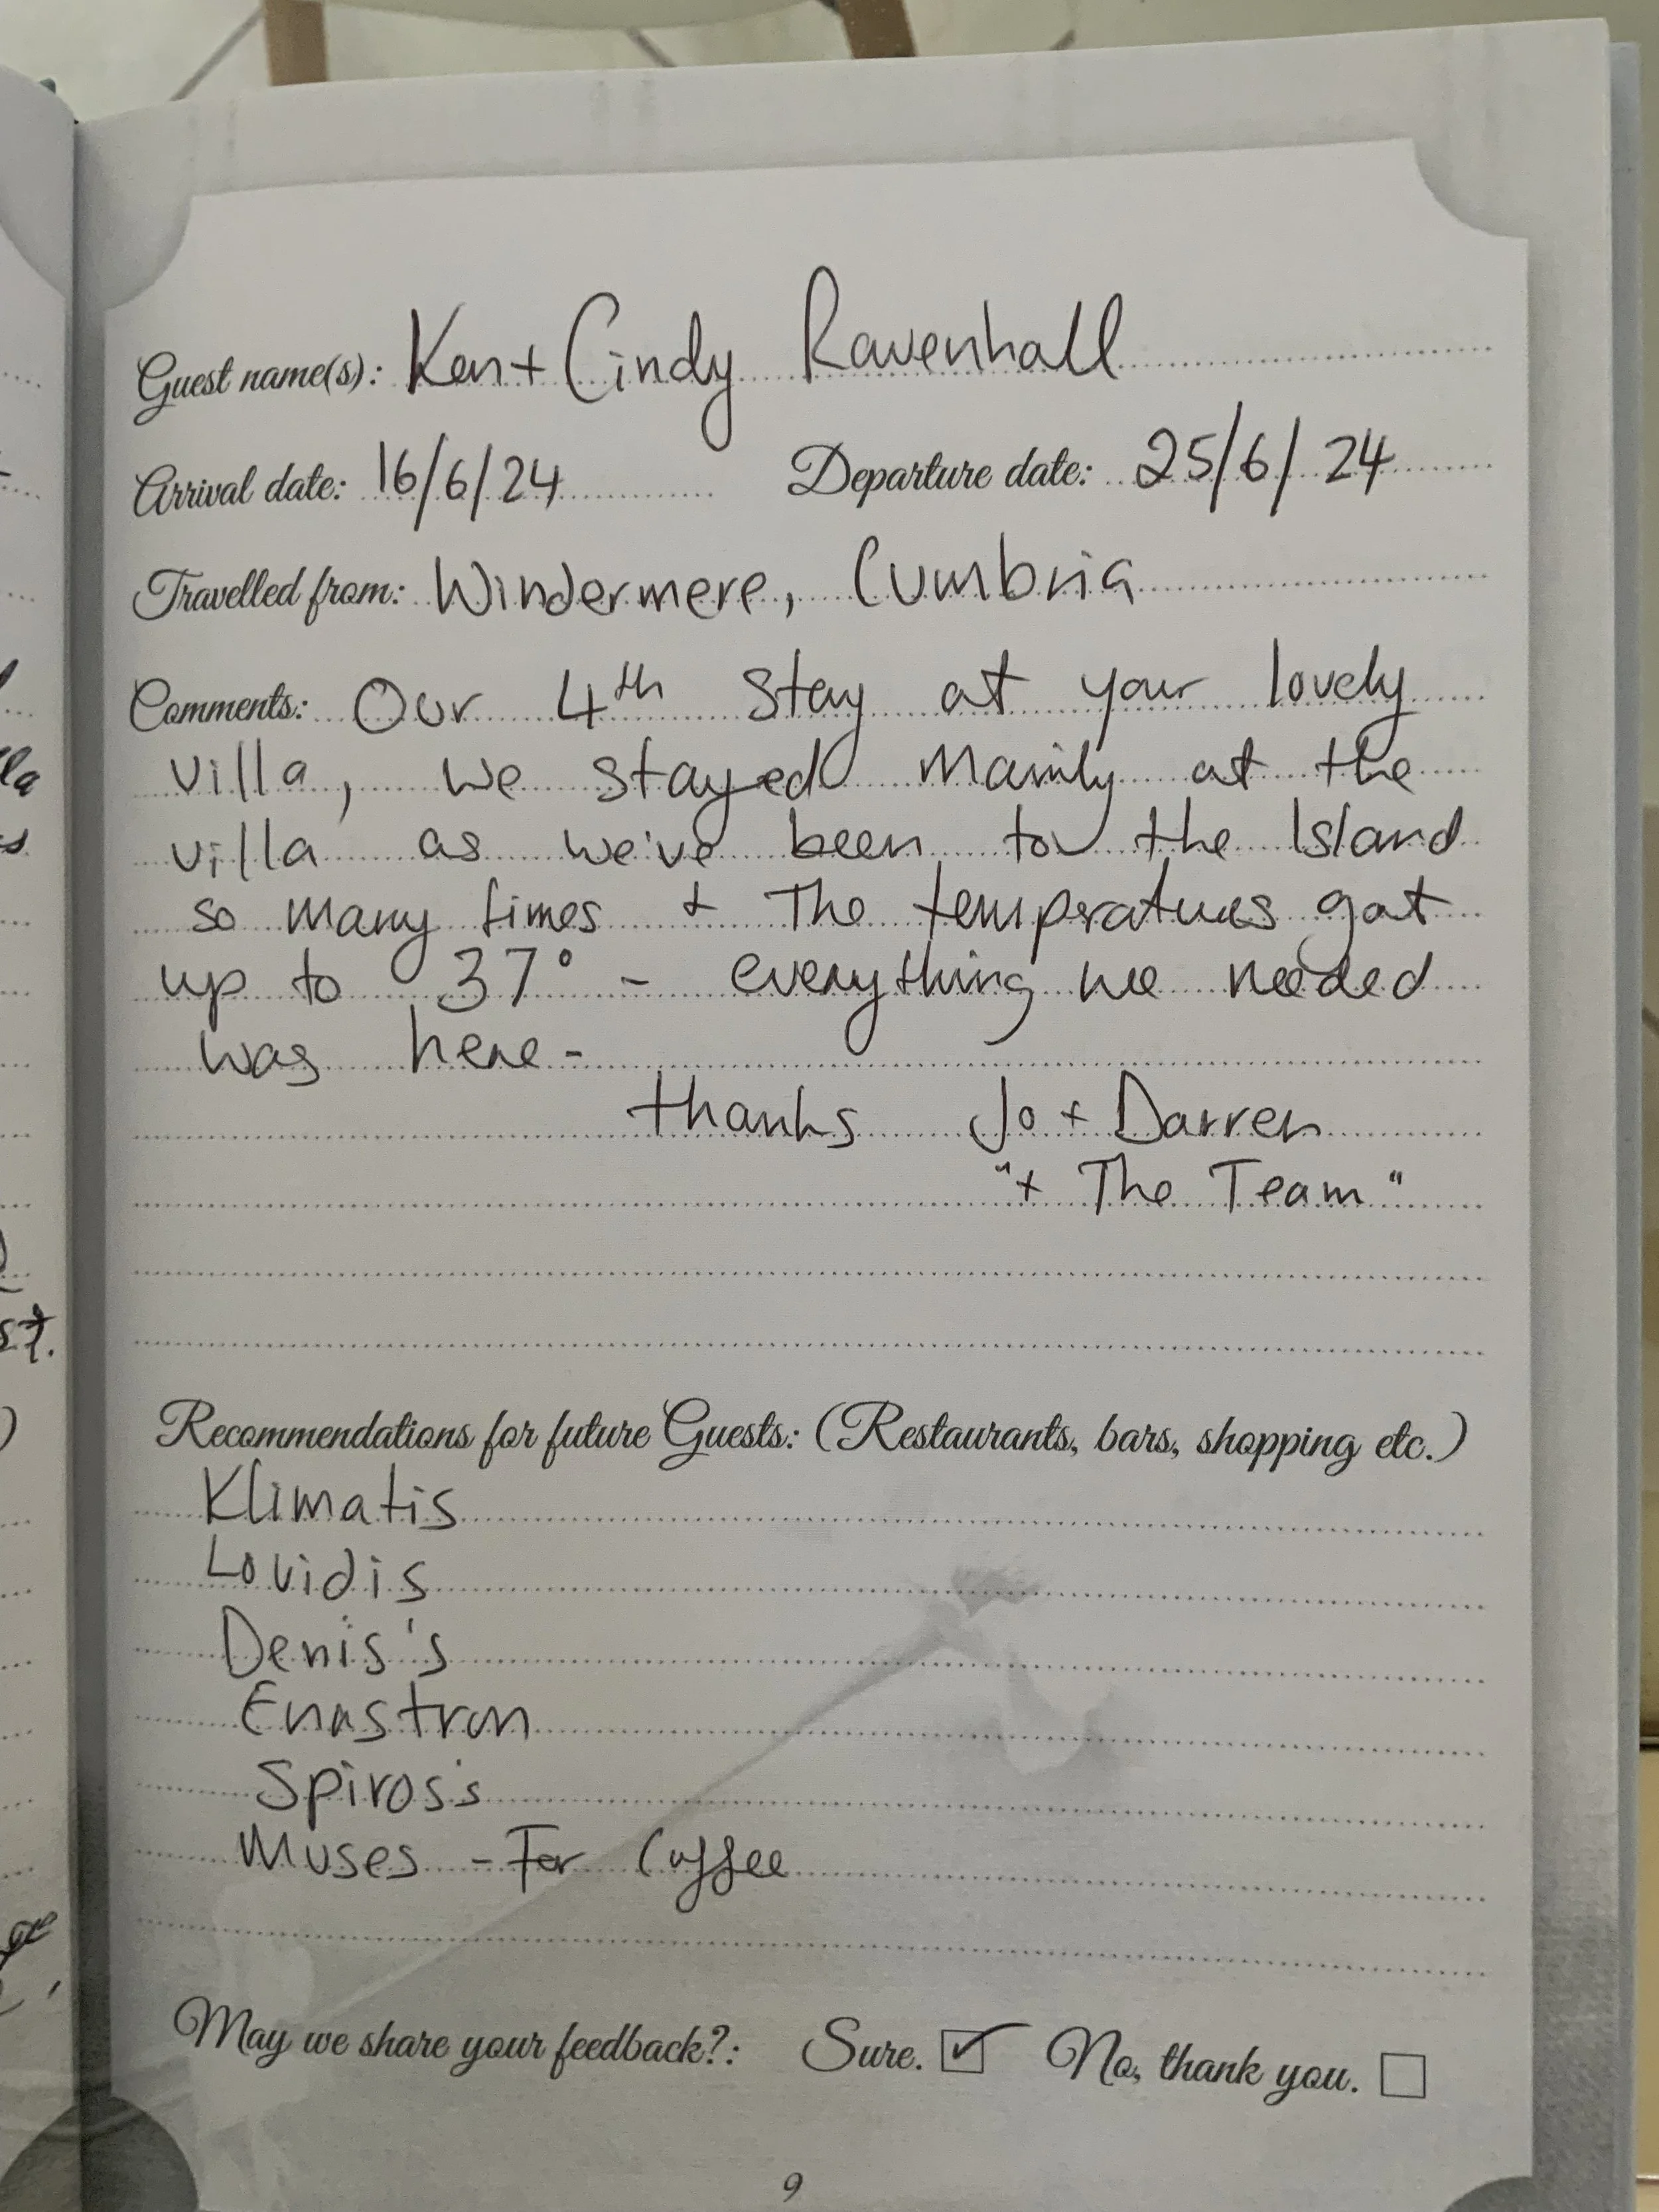 Guest name(s): Ken + Cindy Ravenhall
Arrival date: 16/6/24 Departure date: 25/6/24
Travelled from: Windermere, Cumbria
Comments: Our 4th stay at your lovely
villa, we stayed mainly at the
villa as we've been to the Island
so many times + The temperatures got
up to 37° - everything we needed
was here -
thanks Jo + Darren
"+ The Team"
Recommendations for future Guests: (Restaurants, bars, shopping etc.)
Klimatis
Louidis
Denis's
Enastron
Spiros's
Muses - For Coffee
May we share your feedback?: Sure. ☑ No, thank you. ☐
9